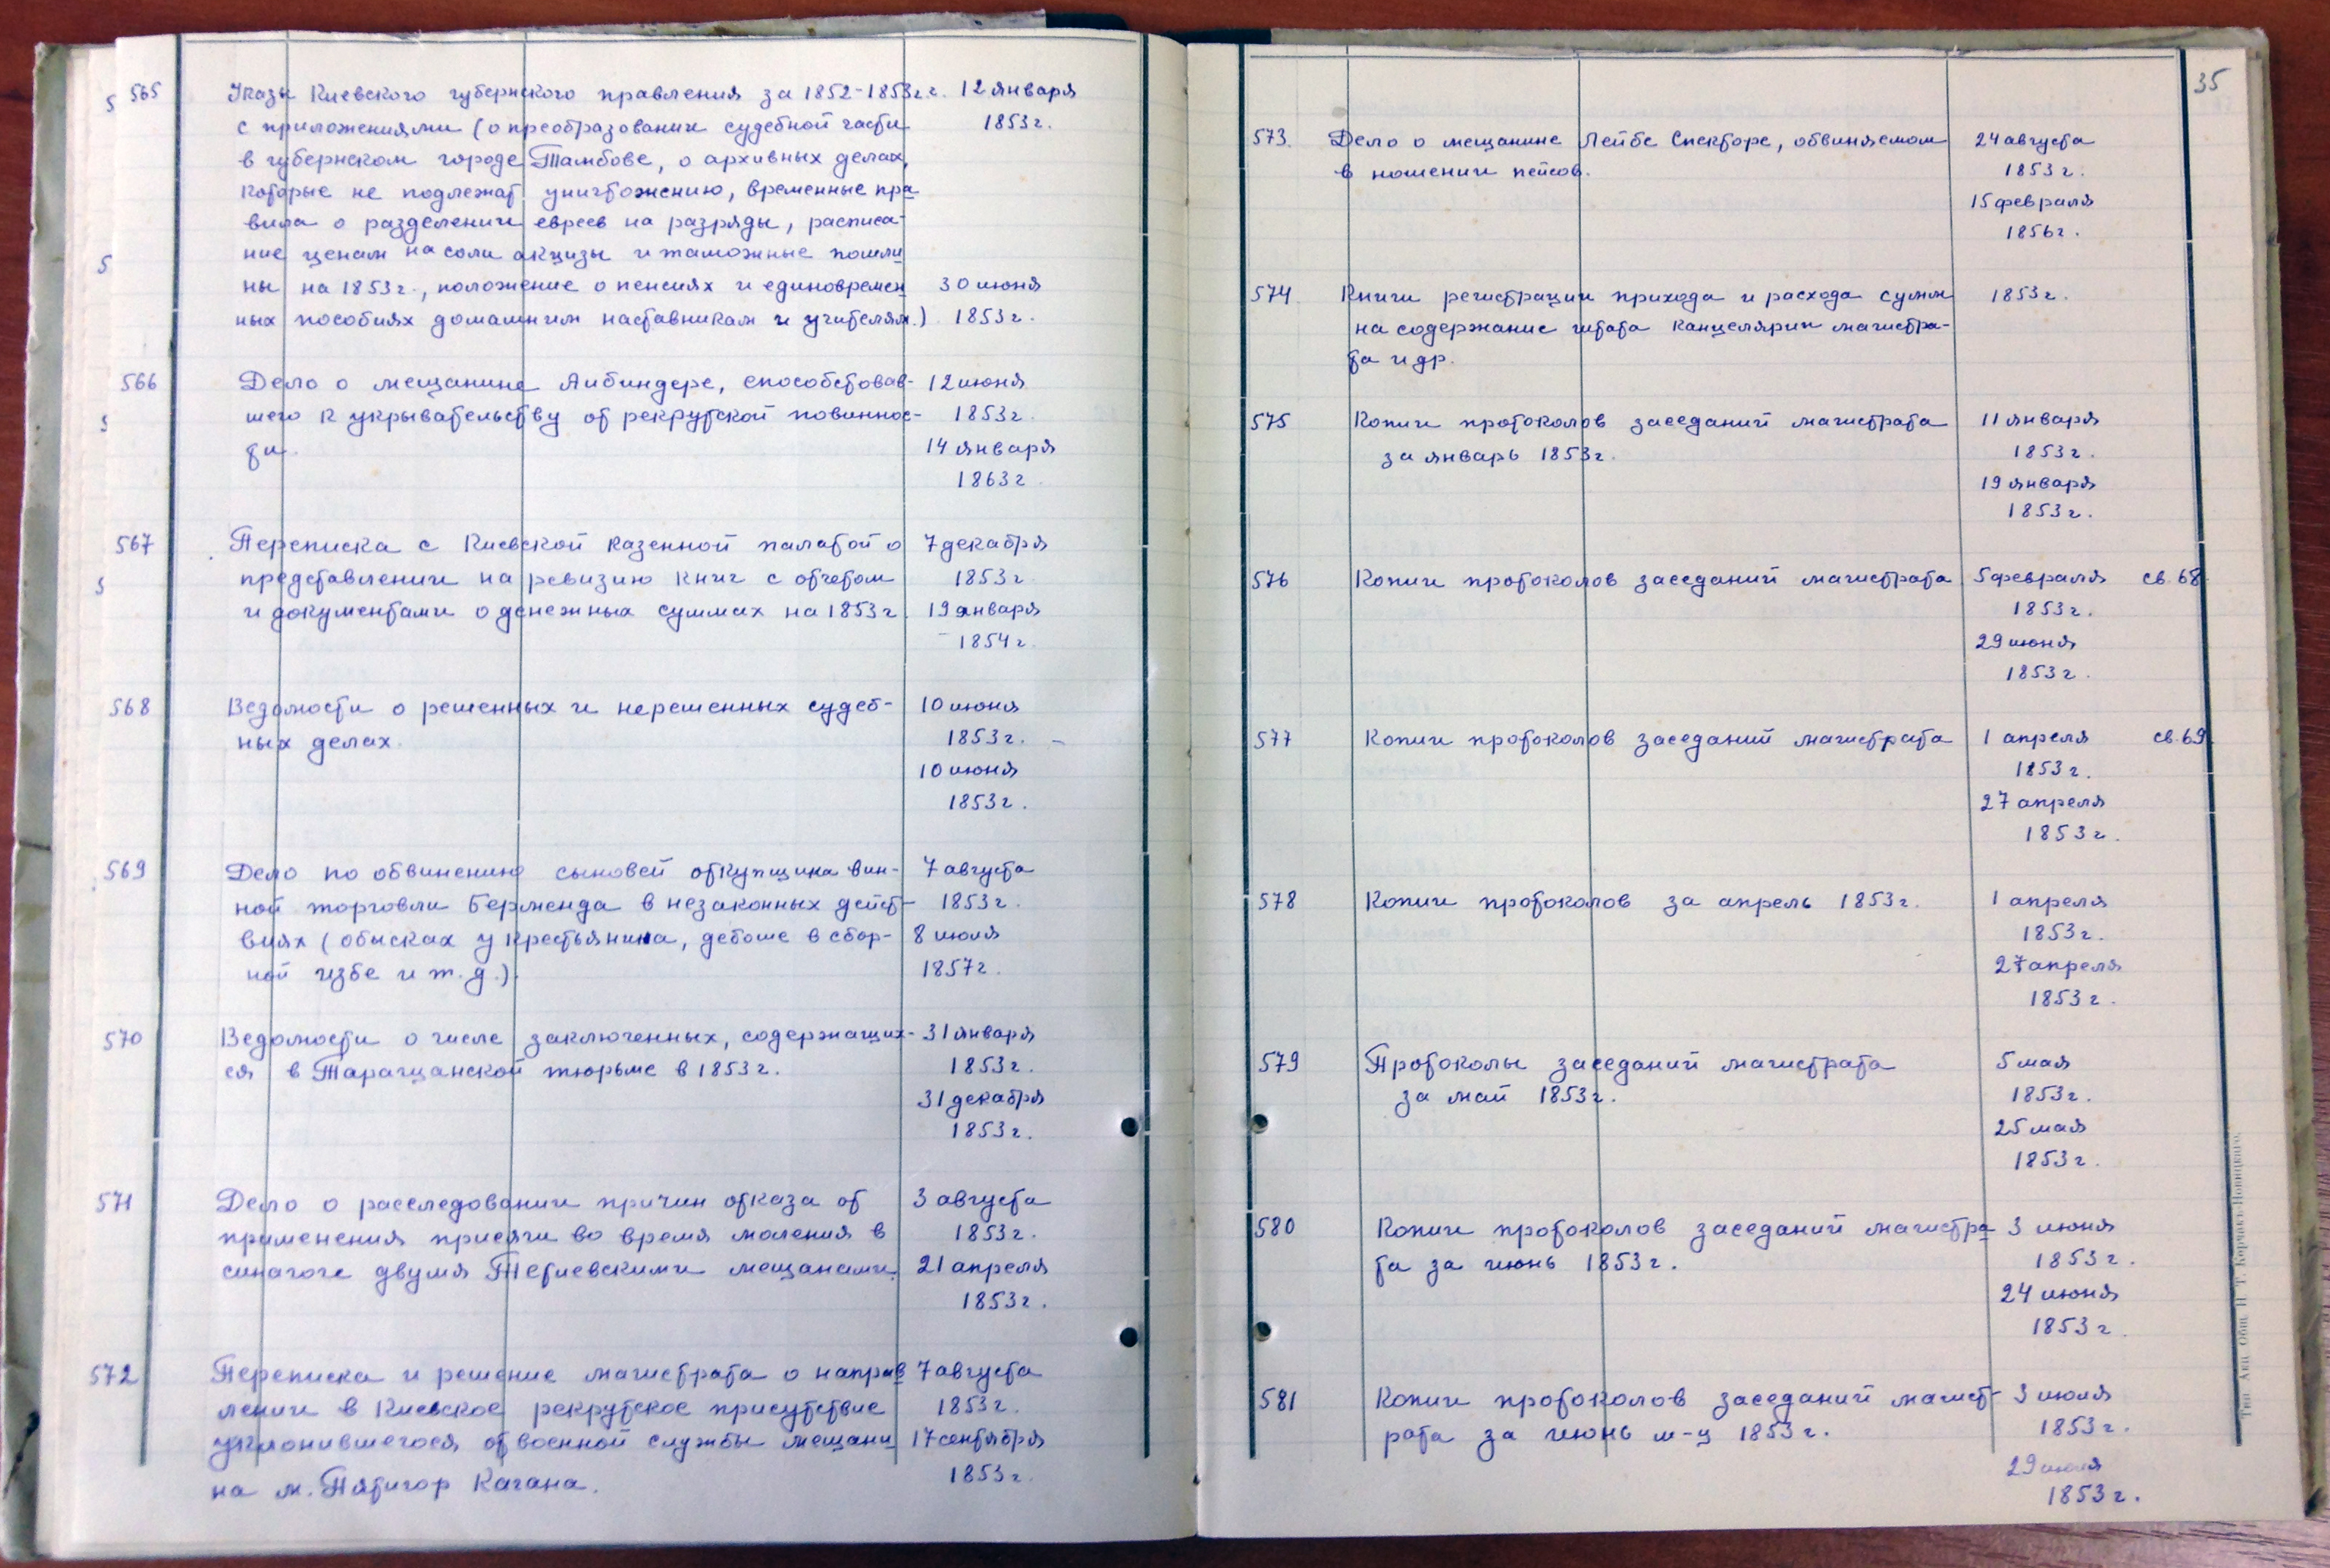 565 Указы Киевского губернского правления за 1852-1853г.г. 12 января
с приложениями (о преобразовании судебной части 1853г.
в губернском городе Тамбове, о архивных делах,
которые не подлежат уничтожению, временные пра
вила о разделении евреев на разряды, расписа-
ние ценам на соли акцизы и таможные пошли
ны на 1853г., положение о пенсиях и единовремен 30 июня
ных пособиях домашним наставникам и учителям.) 1853г.
566 Дело о мещанине Айбиндере, способствовав- 12 июня
шего к укрывательству от рекрутской повиннос- 1853г.
ти. 14 января
1863г.
567 Переписка с Киевской казенной палатой о 7 декабря
представлении на ревизию книг с отчетом 1853г
и документами о денежных суммах на 1853г. 19 января
1854г.
568 Ведомости о решенных и нерешенных судеб- 10 июня
ных делах. 1853г. -
10 июня
1853г.
569 Дело по обвинению сыновей откупщика вин- 7 августа
ной торговли Берменда в незаконных дейст- 1853г.
виях (обысках у крестьянина, дебоше в сбор- 8 июля
ной избе и т.д.). 1857г.
570 Ведомости о числе заключенных, содержащих- 31 января
ся в Таращанской тюрьме в 1853г. 1853г.
31 декабря
1853г.
571 Дело о расследовании причин отказа от 3 августа
применения присяги во время моления в 1853г.
синагоге двумя Тетиевскими мещанами. 21 апреля
1853г.
572 Переписка и решение магистрата о направ 7 августа
лении в Киевское рекрутское присутствие 1853г.
уклонившегося от военной службы мещани 17 сентября
на м. Пятигор Кагана. 1853г.
35
573. Дело о мещанине Лейбе Спекторе, обвиняемом 24 августа
в ношении пейсов. 1853г.
15 февраля
1856г.
574 Книги регистрации прихода и расхода сумм 1853г.
на содержание штата канцелярии магистра-
та и др.
575 Копии протоколов заседаний магистрата 11 января
за январь 1853г. 1853г.
19 января
1853г.
576 Копии протоколов заседаний магистрата 5 февраля св. 68.
1853г.
29 июня
1853г.
577 Копии протоколов заседаний магистрата 1 апреля св. 69.
1853г.
27 апреля
1853г.
578 Копии протоколов за апрель 1853г. 1 апреля
1853г.
27 апреля
1853г.
579 Протоколы заседаний магистрата 5 мая
за май 1853г. 1853г.
25 мая
1853г.
580 Копии протоколов заседаний магистра 3 июня
та за июнь 1853г. 1853г.
24 июня
1853г.
581 Копии протоколов заседаний магист- 3 июля
рата за июнь м-ц 1853г. 1853г.
29 июля
1853г.